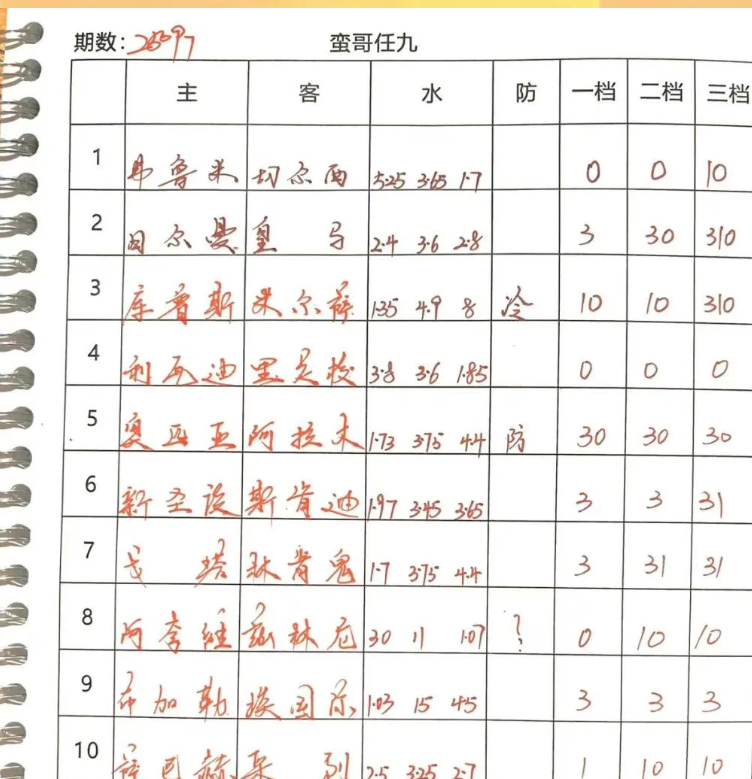 期数: 25097 蛮哥任九
主 客 水 防 一档 二档 三档
1 弗鲁米 切尔西 5.25 3.65 1.7 0 0 10
2 日尔曼 皇马 2.4 3.6 2.8 3 30 310
3 库普斯 米尔萨 1.35 4.9 8 冷 10 10 310
4 利瓦迪 里足校 3.8 3.6 1.85 0 0 0
5 奥匹亚 阿拉木 1.73 3.75 4.4 防 30 30 30
6 新圣设 斯肯迪 1.97 3.45 3.65 3 3 31
7 戈塔 林肯鬼 1.7 3.75 4.4 3 31 31
8 阿李维 兹林尼 30 11 1.07 ? 0 10 10
9 布加勒 埃国际 1.03 15 45 3 3 3
10 萨巴赫 采列 2.5 3.25 2.7 1 10 10